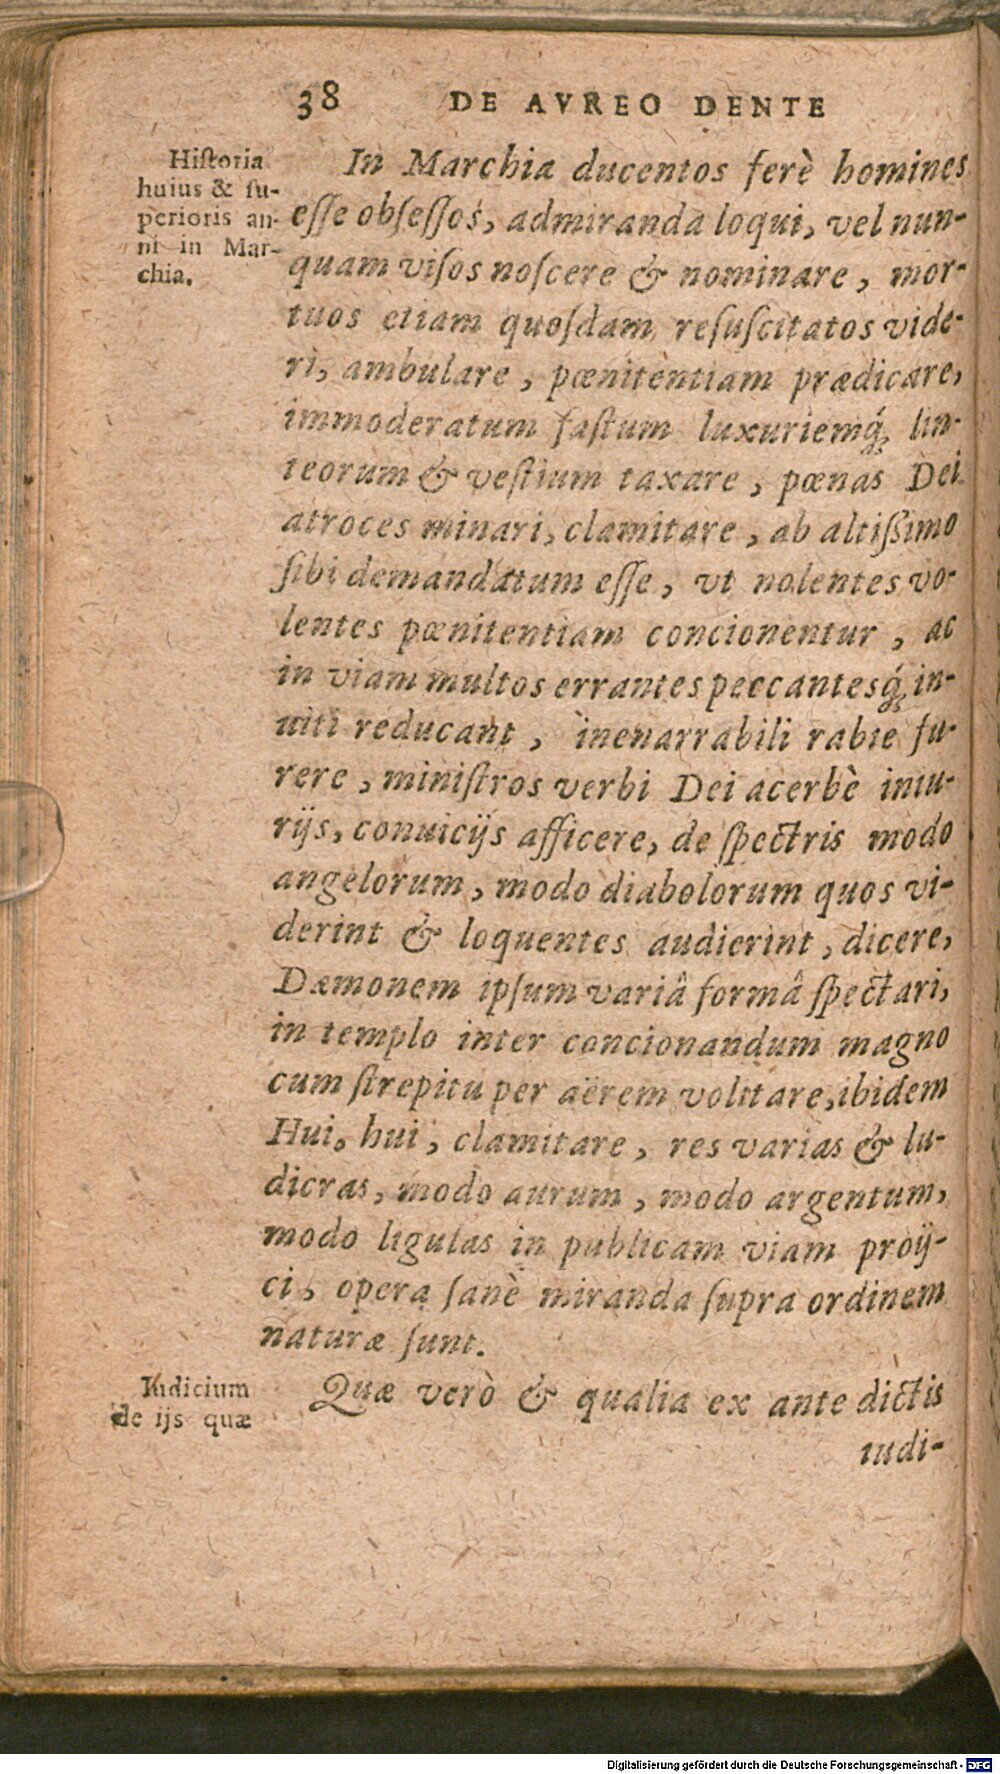 38 DE AVREO DENTE
Hiſtoria
huius & ſu-
perioris an-
ni in Mar-
chia.
In Marchia ducentos ferè homines
eſſe obſeſſos, admiranda loqui, vel nun-
quam viſos noſcere & nominare, mor-
tuos etiam quoſdam reſuſcitatos vide-
ri, ambulare, pœnitentiam prædicare,
immoderatum faſtum luxuriemq́; lin-
teorum & veſtium taxare, pœnas Dei
atroces minari, clamitare, ab altiſſimo
ſibi demandatum eſſe, vt nolentes vo-
lentes pœnitentiam concionentur, ac
in viam multos errantes peccantesq́; in-
uiti reducant, inenarrabili rabie fu-
rere, miniſtros verbi Dei acerbè iniu-
rijs, conuicijs afficere, de ſpectris modo
angelorum, modo diabolorum quos vi-
derint & loquentes audierint, dicere,
Dæmonem ipſum variâ formâ ſpectari,
in templo inter concionandum magno
cum ſtrepitu per aërem volitare, ibidem
Hui, hui, clamitare, res varias & lu-
dicras, modo aurum, modo argentum,
modo ligulas in publicam viam proij-
ci, opera ſanè miranda ſupra ordinem
naturæ ſunt.
Iudicium
de ijs quæ
Quæ verò & qualia ex ante dictis
iudi-
Digitalisierung gefördert durch die Deutsche Forschungsgemeinschaft - DFG